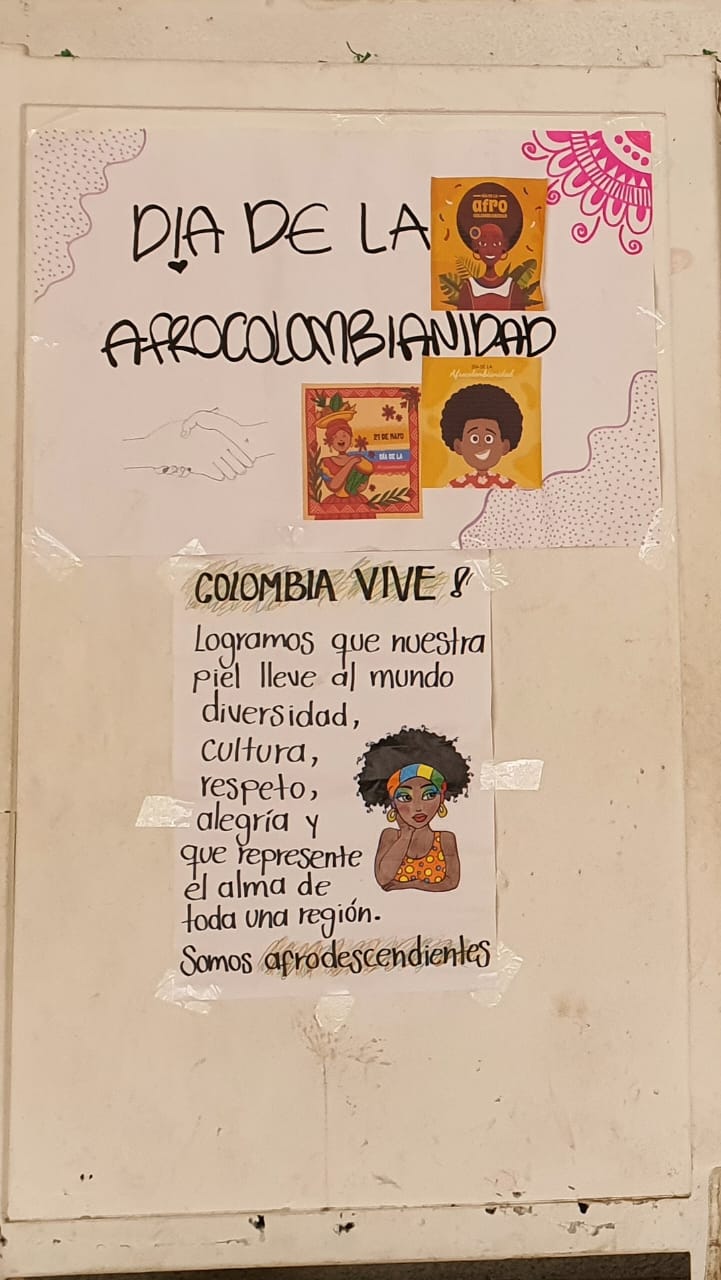 DIA DE LA
DÍA DE LA
afro
AFROCOLOMBIANIDAD
DÍA DE LA
Afrocolombianidad
21 DE MAYO
DÍA DE LA
COLOMBIA VIVE!
Logramos que nuestra
piel lleve al mundo
diversidad,
cultura,
respeto,
alegría y
que represente
el alma de
toda una región.
Somos afrodescendientes